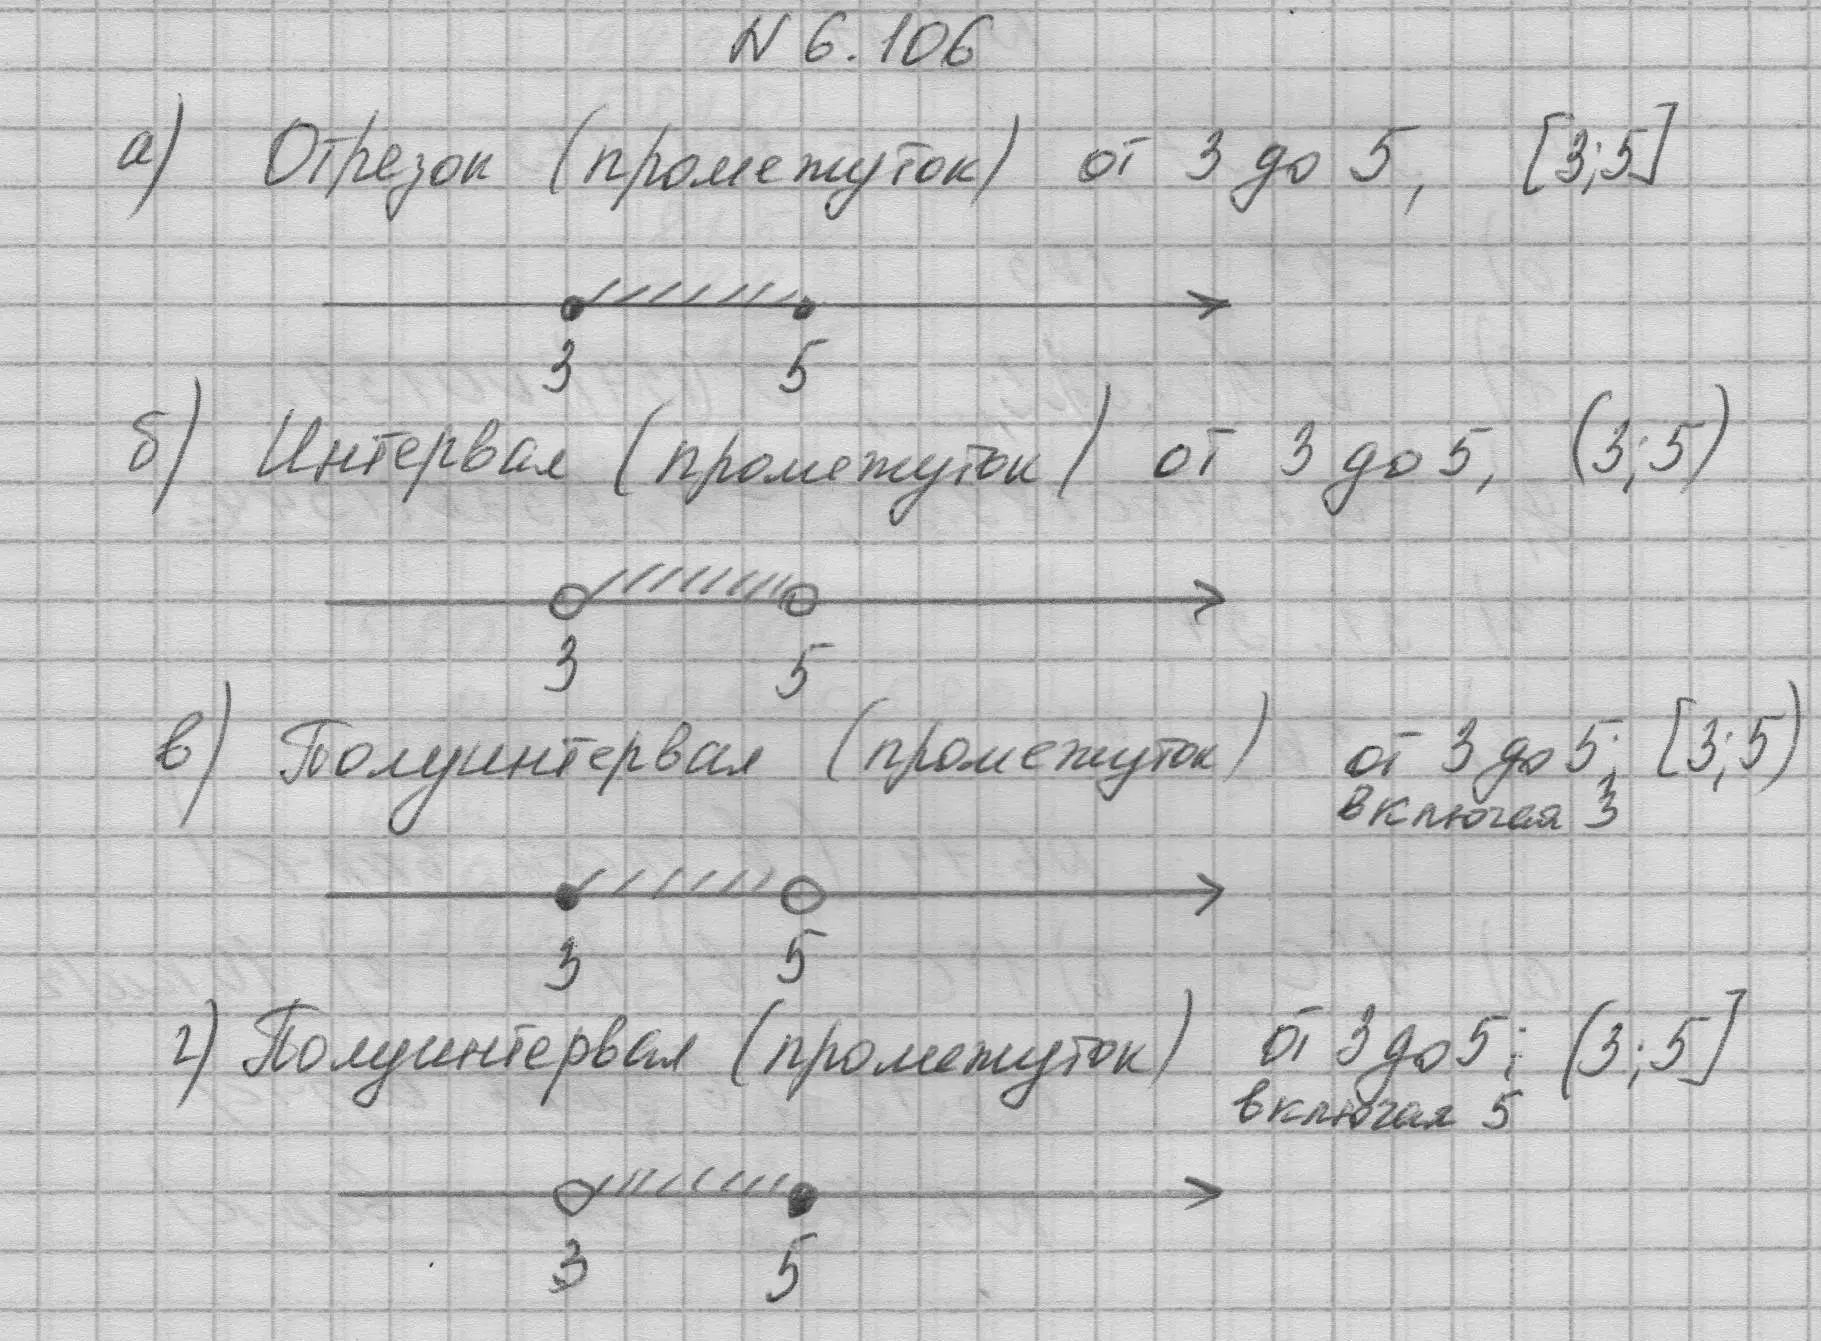 N 6.106
а) Отрезок (промежуток) от 3 до 5, [3;5]
3 5
б) Интервал (промежуток) от 3 до 5, (3;5)
3 5
в) Полуинтервал (промежуток) от 3 до 5; [3;5)
включая 3
3 5
г) Полуинтервал (промежуток) от 3 до 5; (3;5]
включая 5
3 5